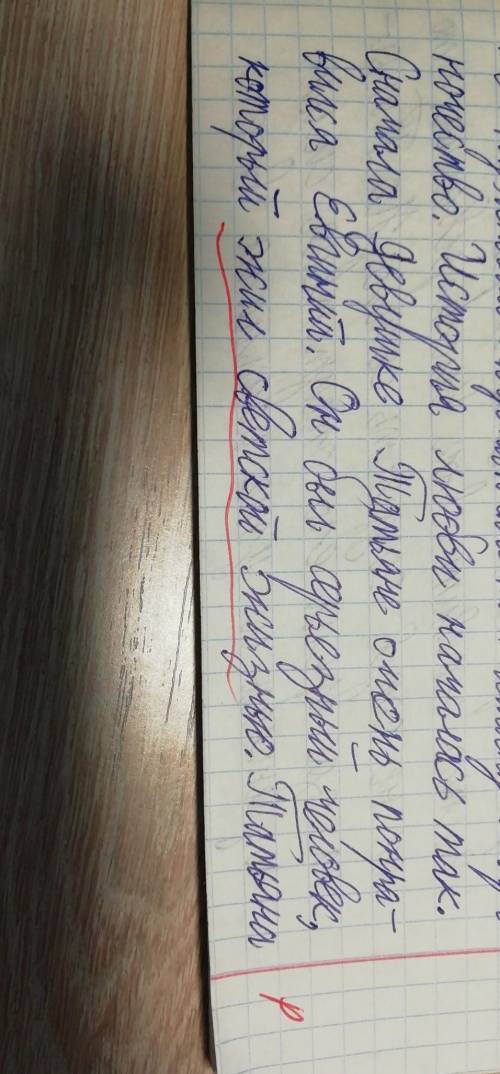 ночество. История любви началась так.
Сначала девушке Татьяне очень понра-
вился Евгений. Он был серьезный человек,
который жил светской жизнью. Татьяна
р